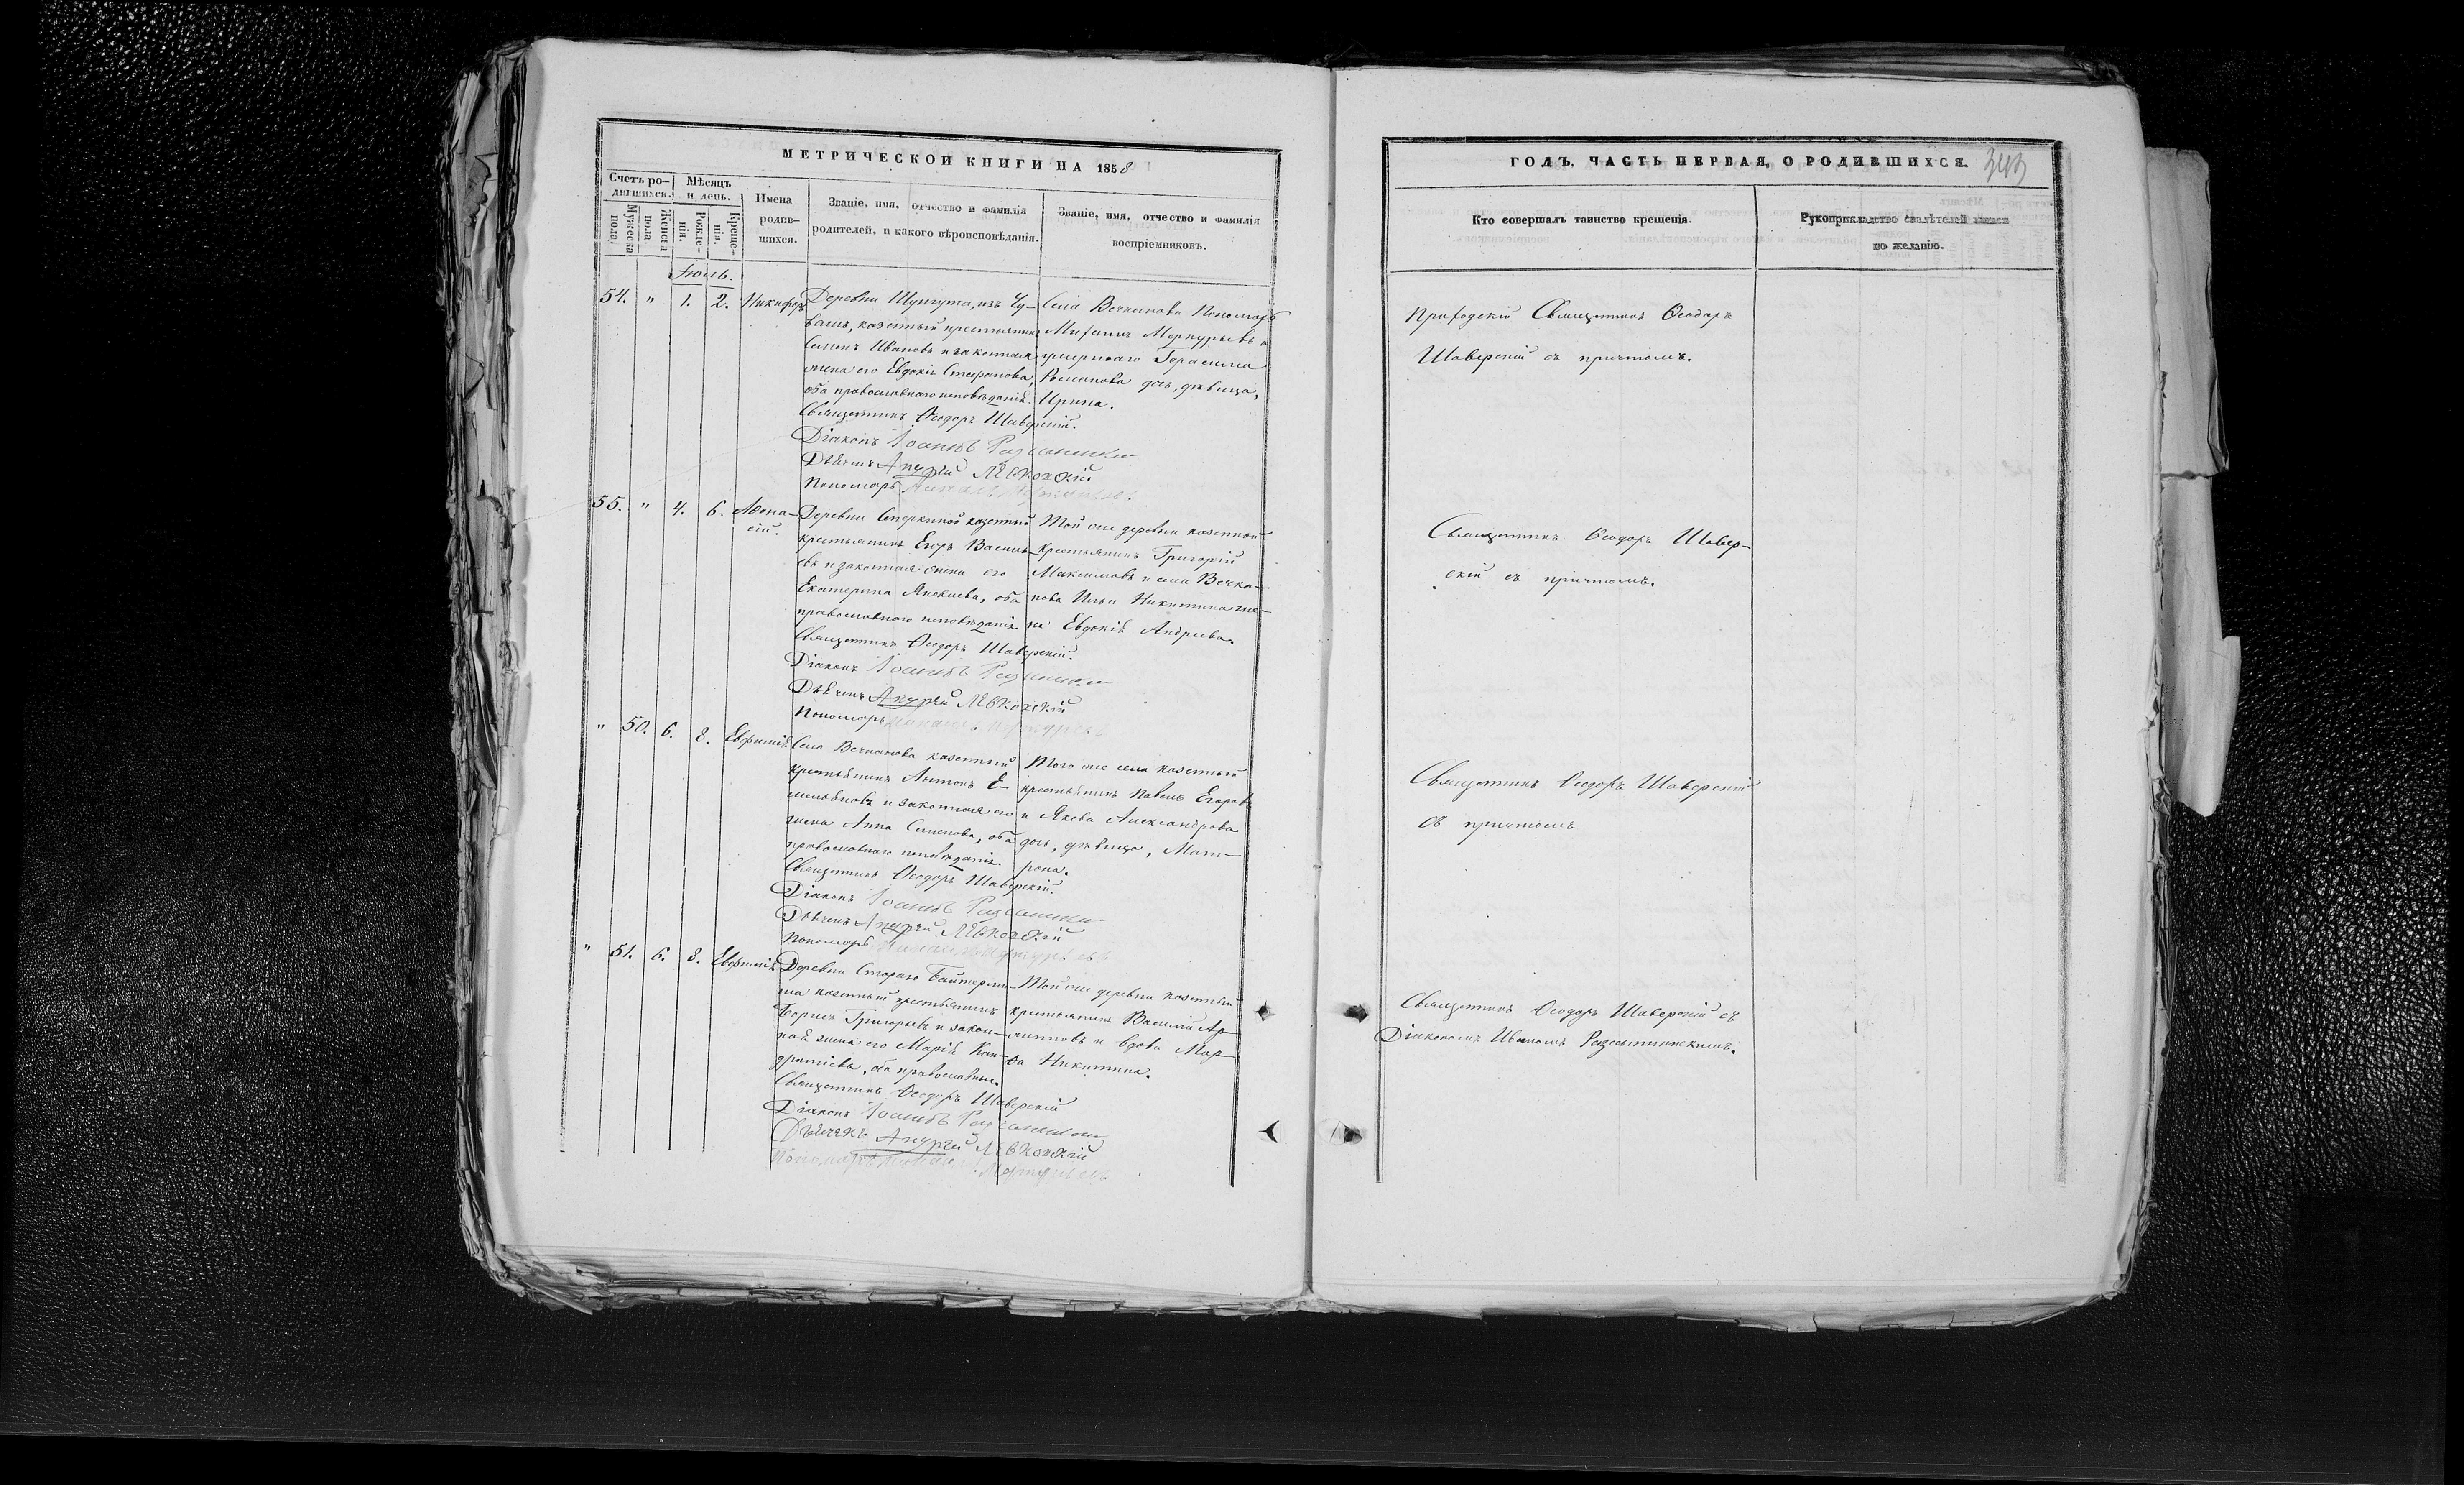 МЕТРИЧЕСКОЙ КНИГИ НА 1858
Счетъ ро-
дившихся.
Мѣсяцъ
и день.
Мужеска
пола.
Женска
пола
Рожде-
нія.
Креще-
нія.
Имена
родив-
шихся.
Званіе, имя, отчество и фамилія
родителей, и какого вѣроисповѣданія.
Званіе, имя, отчество и фамилія
воспріемниковъ.
Іюнь.
54. " 1. 2. Никифоръ
Деревни Шунгута, изъ Чу-
вашъ, казенный крестьянинъ
Семенъ Ивановъ и законная
жена его Евдокія Стефанова,
оба православнаго исповѣданія.
Священникъ Ѳеодоръ Шаверскій.
Діаконъ Іоаннъ
Дьячекъ Андрей
Пономарь
Села Вечканова Пономарь
Михаилъ Меркурьевъ и
умершаго Герасима
Романова дочь, дѣвица,
Ирина.
55. " 4. 6. Аѳона-
сій.
Деревни казенный
крестьянинъ Егоръ Василь-
евъ и законная жена его
Екатерина Яковлева, оба
православнаго исповѣданія
Священникъ Ѳеодоръ Шаверскій.
Діаконъ Іоаннъ
Дьячекъ Андрей
Пономарь Михаилъ Меркурьевъ
Той же деревни казенной
крестьянинъ Григорій
Максимовъ и села Вечка-
нова Ильи Никитина же-
на Евдокія Андреева.
" 50. 6. 8. Евфимія
Села Вечканова казенный
крестьянинъ Антонъ Е-
мельяновъ и законная его
жена Анна Семенова, оба
православнаго исповѣданія.
Священникъ Ѳеодоръ Шаверскій.
Діаконъ Іоаннъ
Дьячекъ Андрей
Пономарь Михаилъ Меркурьевъ
Того же села казенный
крестьянинъ Павелъ Егоровъ
и Якова Александрова
дочь, дѣвица, Мат-
рона.
" 51. 6. 8. Евфимія
Деревни Стараго Байтерми-
ша казенный крестьянинъ
Георгій Григорьевъ и закон-
ная жена его Марія Кон-
дратіева, оба православные.
Священникъ Ѳеодоръ Шаверскій
Діаконъ Іоаннъ
Дьячекъ Андрей
Пономарь Михаилъ Меркурьевъ
Той же деревни казенный
крестьянинъ Василій Ар-
хиповъ и вдова Мар-
ѳа Никитина.
ГОДЪ, ЧАСТЬ ПЕРВАЯ, О РОДИВШИХСЯ.
343
Кто совершалъ таинство крещенія.
Рукоприкладство свидѣтелей записи
по желанію.
Приходскій Священникъ Ѳеодоръ
Шаверскій съ причтомъ.
Священникъ Ѳеодоръ Шавер-
скій съ причтомъ.
Священникъ Ѳеодоръ Шаверскій
съ причтомъ
Священникъ Ѳеодоръ Шаверскій съ
Діакономъ Иваномъ